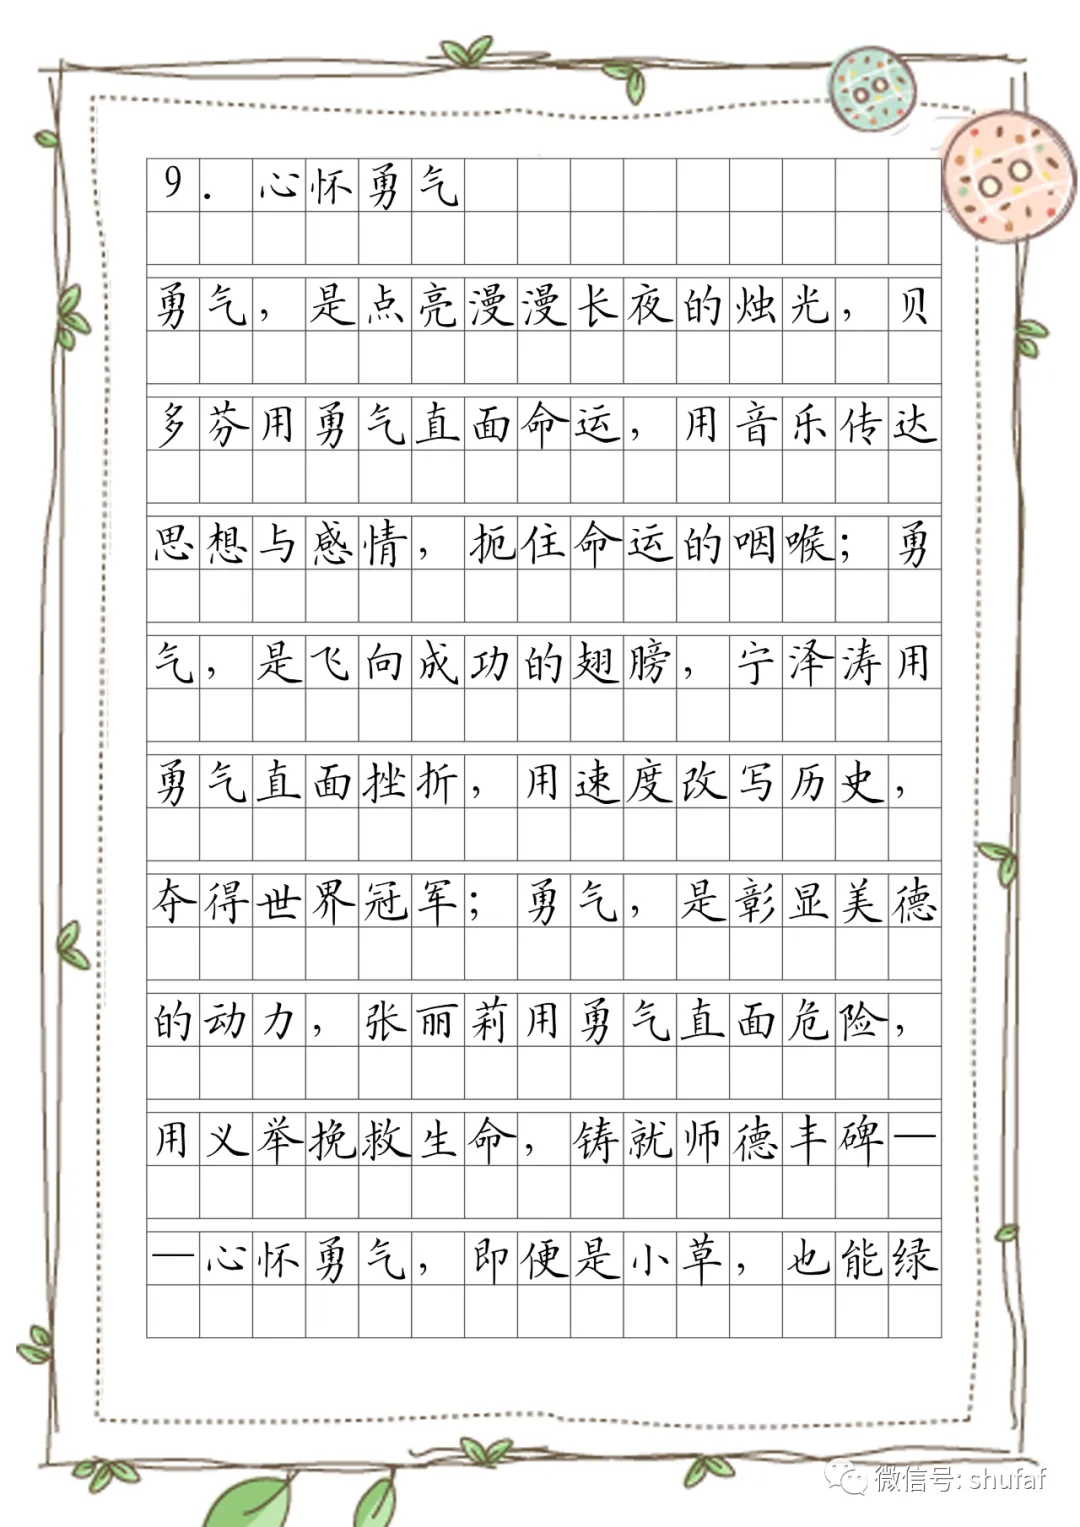 9. 心怀勇气
勇气，是点亮漫漫长夜的烛光，贝
多芬用勇气直面命运，用音乐传达
思想与感情，扼住命运的咽喉；勇
气，是飞向成功的翅膀，宁泽涛用
勇气直面挫折，用速度改写历史，
夺得世界冠军；勇气，是彰显美德
的动力，张丽莉用勇气直面危险，
用义举挽救生命，铸就师德丰碑—
—心怀勇气，即便是小草，也能绿
微信号: shufaf